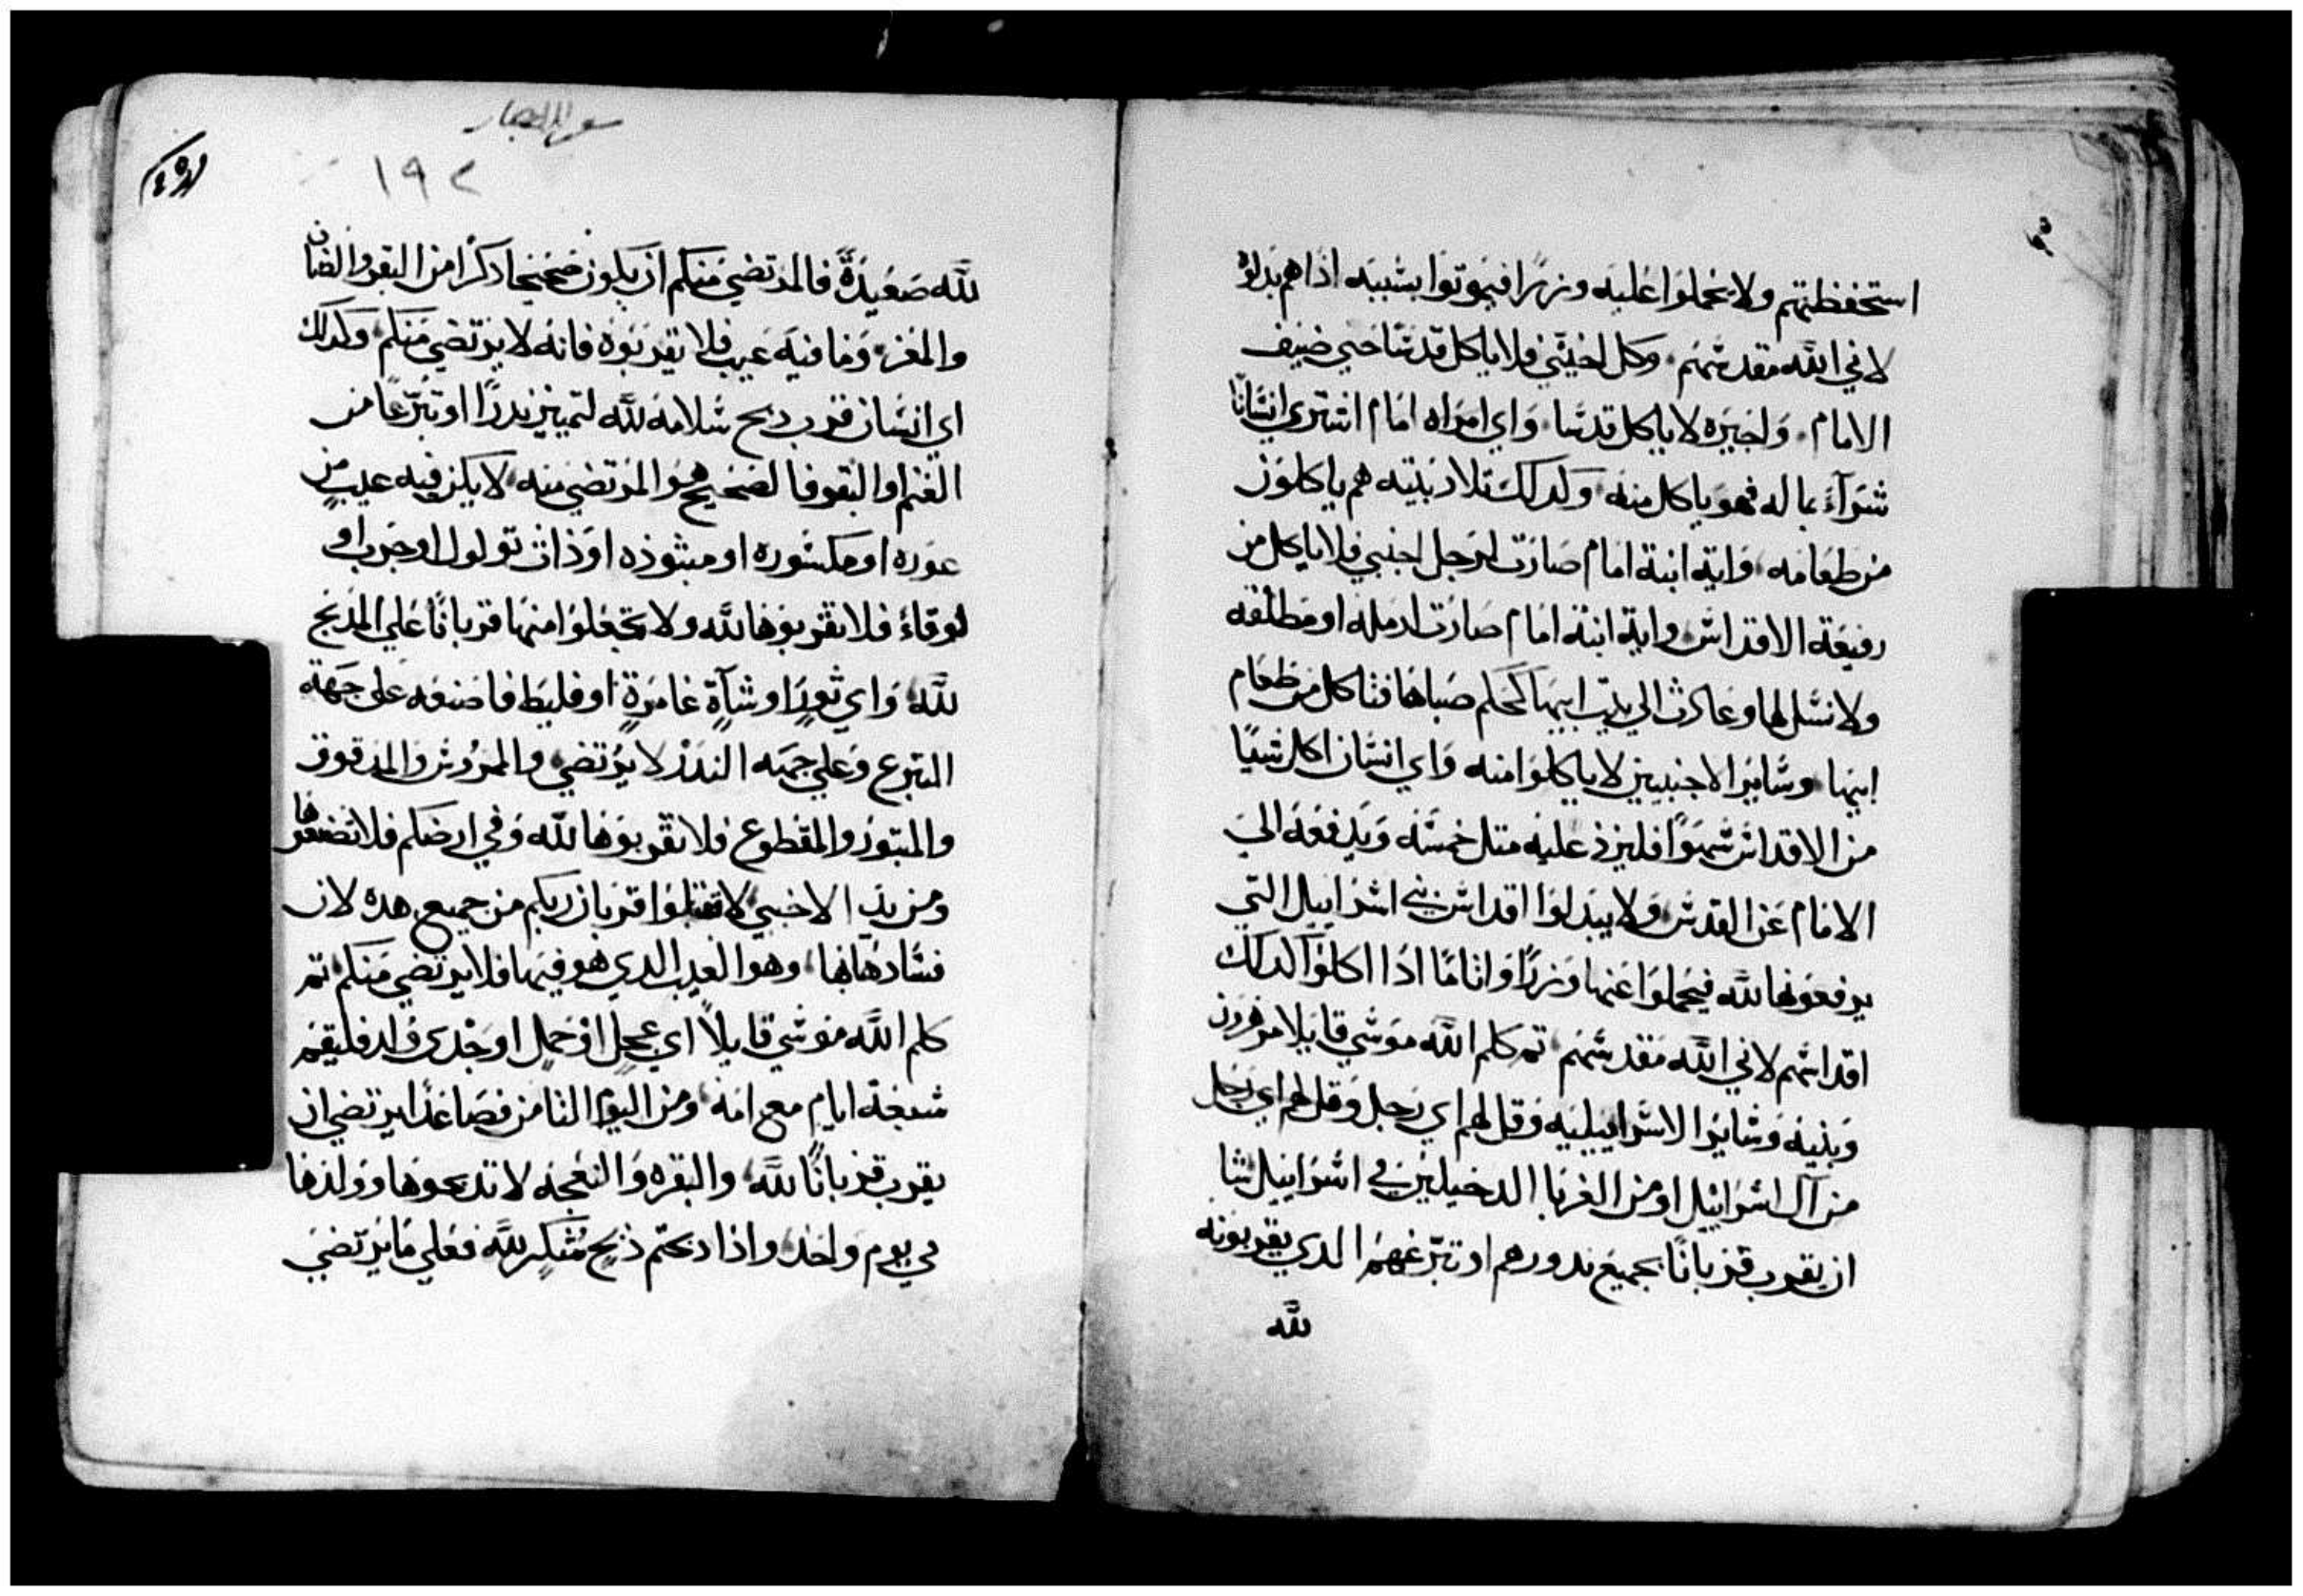 استحفظتهم ولا يحملوا عليه وزرًا فيموتوا بسببه اذا هم بدلوه
لاني الله مقدسهم. وكل اجنبي فلا ياكل قدسًا حبي ضيف
الامام. واجيره لا ياكل قدسًا. واي امراه امام اشتري انسانًا
شرآءَ بماله فهو ياكل منه وكدلك تلاد بيته هم ياكلون
من طعامه. واية ابنة امام صارت لرجل اجنبي فلا ياكل من
رفيعة الاقداس. واية ابنة امام صارت ارمله او مطلقه
ولا نسل لها وعادت الي بيت ابيها كحكم صباها فتاكل من طعام
ابيها. وسايرا لاجنبيين لا ياكلوا منه واي انسان اكل شيًا
من الاقداس سهوًا فليزد عليه متل خمسه ويدفعه الي
الامام عن القدس. ولا يبدلوا اقداس بني اسراييل التي
يرفعونها لله فيحملوا عنها وزرًا واثامًا ادا اكلوا كدلك
اقداسهم لاني الله مقدسهم تم كلم الله موسي قايلا مر هرون
وبنيه وسايرا لاسراييليه وقل لهم اي رجل وقل لهم اي رجل
من آل اسراييل او من الغربا الدخيلين في اسراييل شا
ان يقرب قربانًا بجميع ندورهم او تبرعهم الدي يقربونه
لله
١٩٢
لله صعيدةً فالمرتضي منكم ان يكون صحيحا دكرًا من البقر والضان
والمعز. وما فيه عيب فلا تقربوه فانه لا يرتضي منكم. وكدلك
اي انسان قرب دبح سلامه لله لتمييز ندرًا او تبرّعًا من
الغنم او البقر فالصحيح هو المرتضي منه. لا يكن فيه عيب من
عوره او مكسوره او مبثوذه او ذات تولول او جرب او
لوقاءُ فلا تقربوها لله ولا تجعلوا منها قربانًا علي المدبح
لله. واي ثورٍ او شآةٍ غامرةٍ او فليط فاصنعه علي جهة
التبرع وعلي جهه الندر لا يرتضي. والمردس والمدقوق
والمبتور والمقطوع فلا تقربوها لله وفي ارضكم فلا تصنعوها
ومن يد الاجنبي لا تقبلوا قربان ربكم من جميع هده لان
فسادها بها. وهو العيب الدي هو فيها فلا يرتضي منكم تم
كلم الله موسي قايلاً اي عجلٍ او حملٍ او جدي ولد فليقم
سبعة ايام مع امه. ومن اليوم التامن فصاعدًا يرتضي ان
يقرب قربانًا لله. والبقره والنعجه لا تدبحوها وولدها
في يوم واحد. واذا دبحتم ذبح شكرٍ لله فعلي ما يرتضي